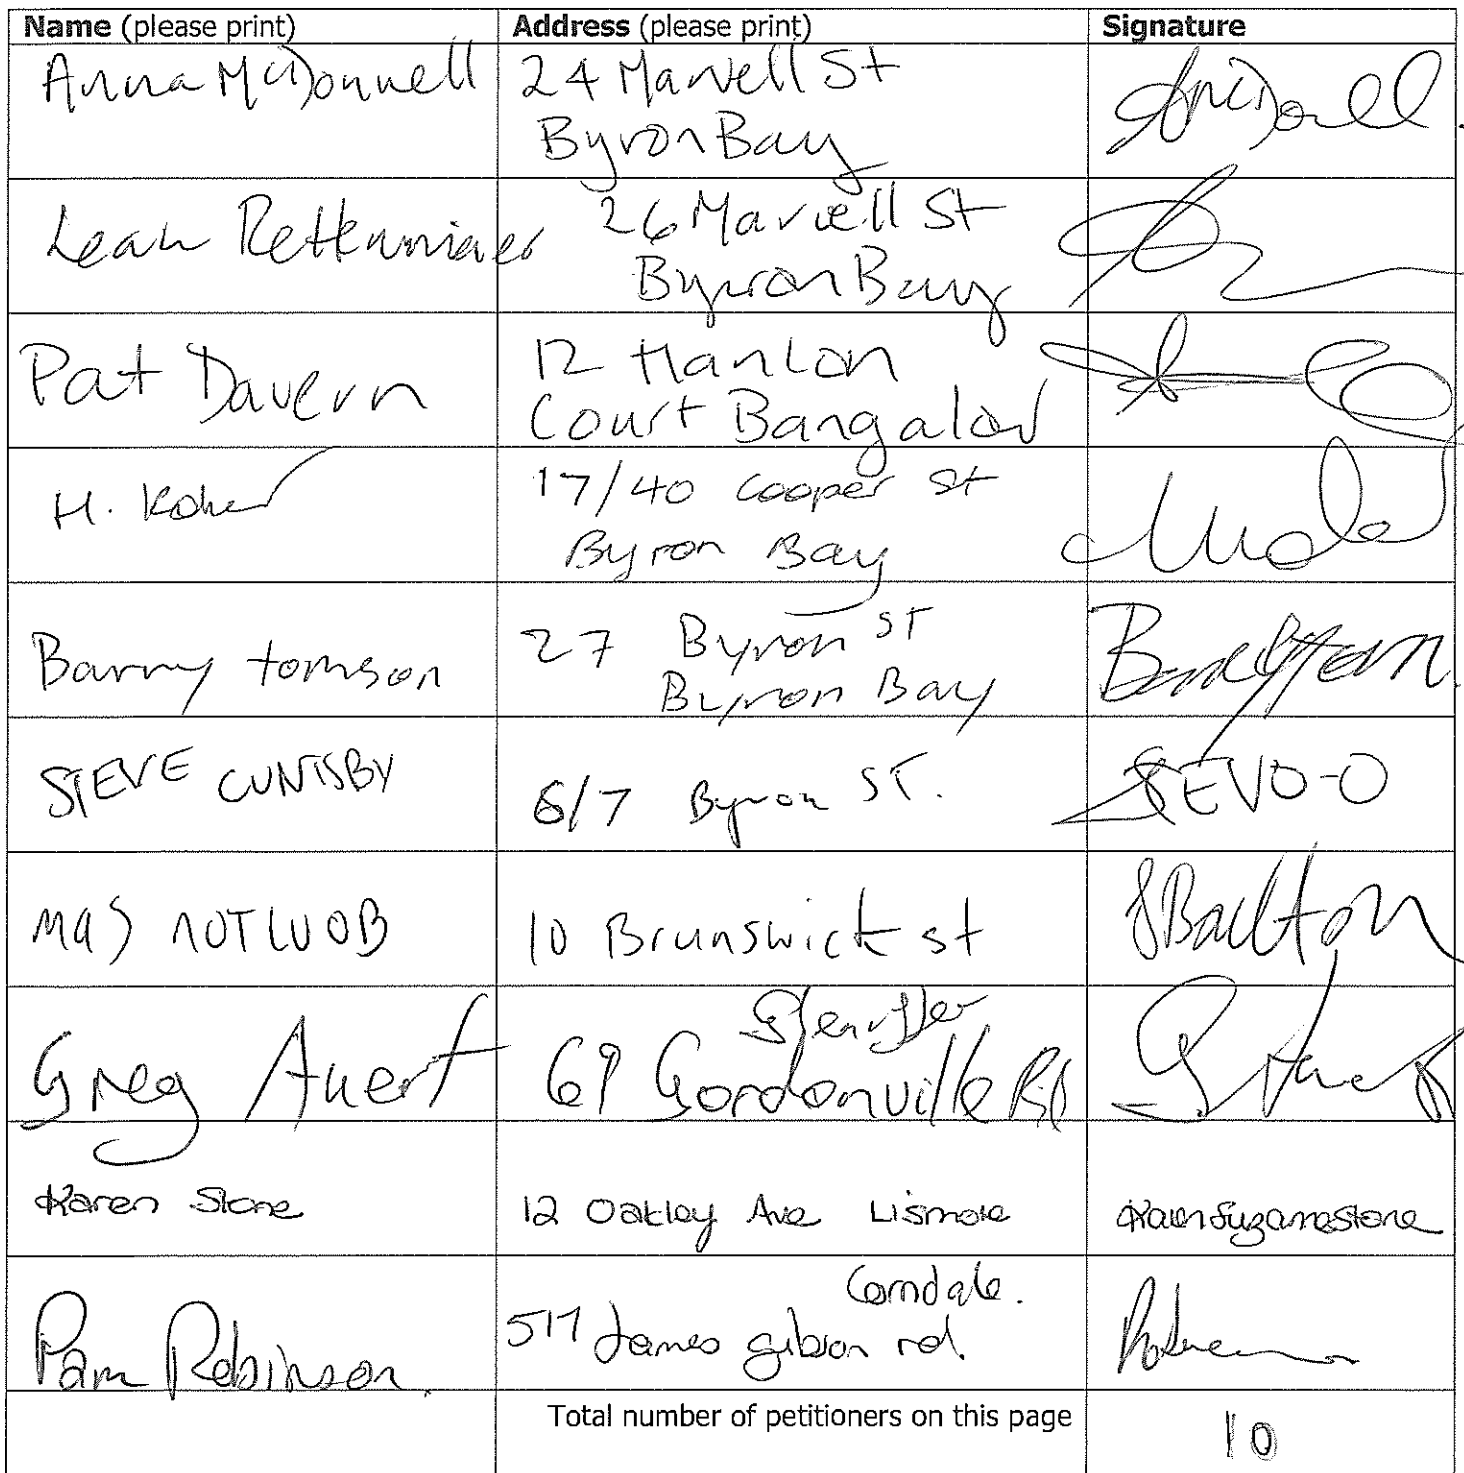 Name (please print) Address (please print) Signature
Anna McDonnell 24 Marvell St
Byron Bay
Leah Rettenmaier 26 Marvell St
Byron Bay
Pat Davern 12 Hanlon
Court Bangalow
H. 17/40 Cooper St
Byron Bay
Barry tomson 27 Byron ST
Byron Bay
STEVE CUNTSBY 6/7 Byron ST. STEVO-O
MAS NOTLUOB 10 Brunswick st SBoulton
Greg 69 Gordonville Rd
Karen Stone 12 Oakley Ave Lismore Karen Suzanne Stone
Corndale.
Pam Robinson. 517 James gibson rd.
Total number of petitioners on this page 10